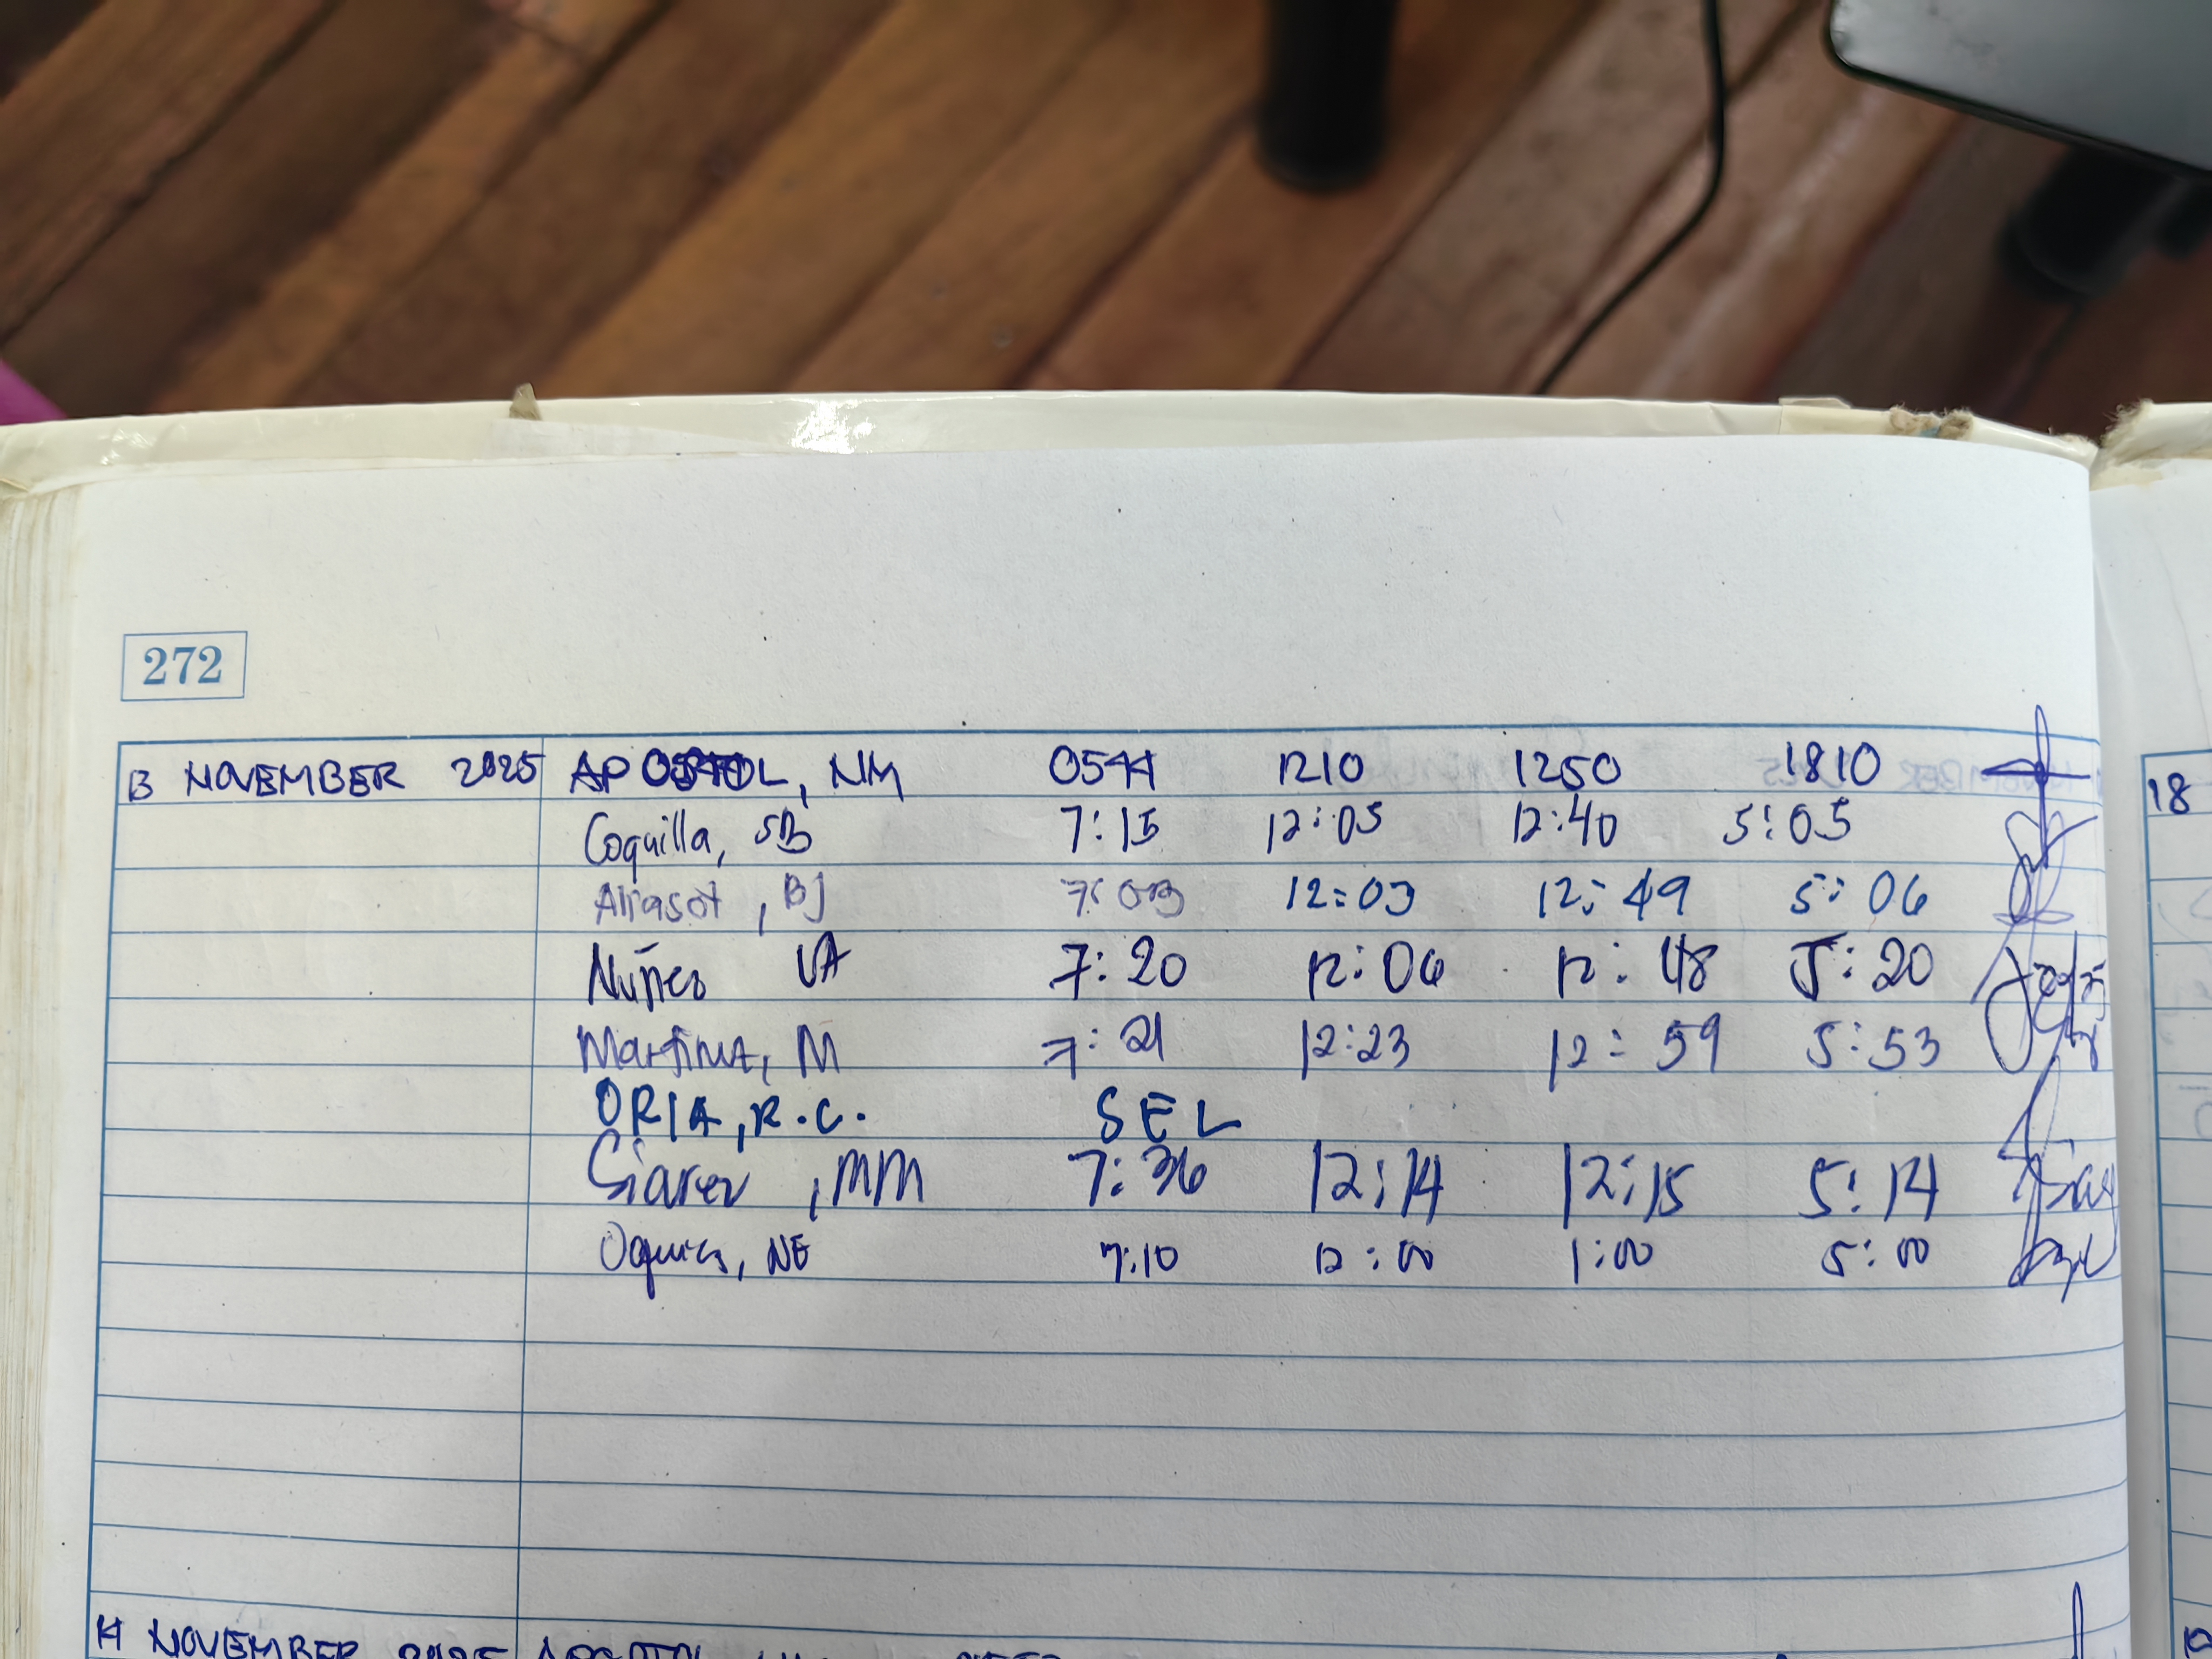 272
13 NOVEMBER 2025 APOSTOL, NM 0544 1210 1250 1810
Coquilla, SB 7:15 12:05 12:40 5:05
Aliasot, BJ 7:03 12:03 12:49 5:06
Nuñez VA 7:20 12:06 12:48 5:20
Martinez, M 7:21 12:23 12:59 5:53
ORIA, R.C. SEL
, MM 7:36 12:14 12:15 5:14
NE 7:10 12:00 1:00 5:00
14 NOVEMBER 2025 APOSTOL
18